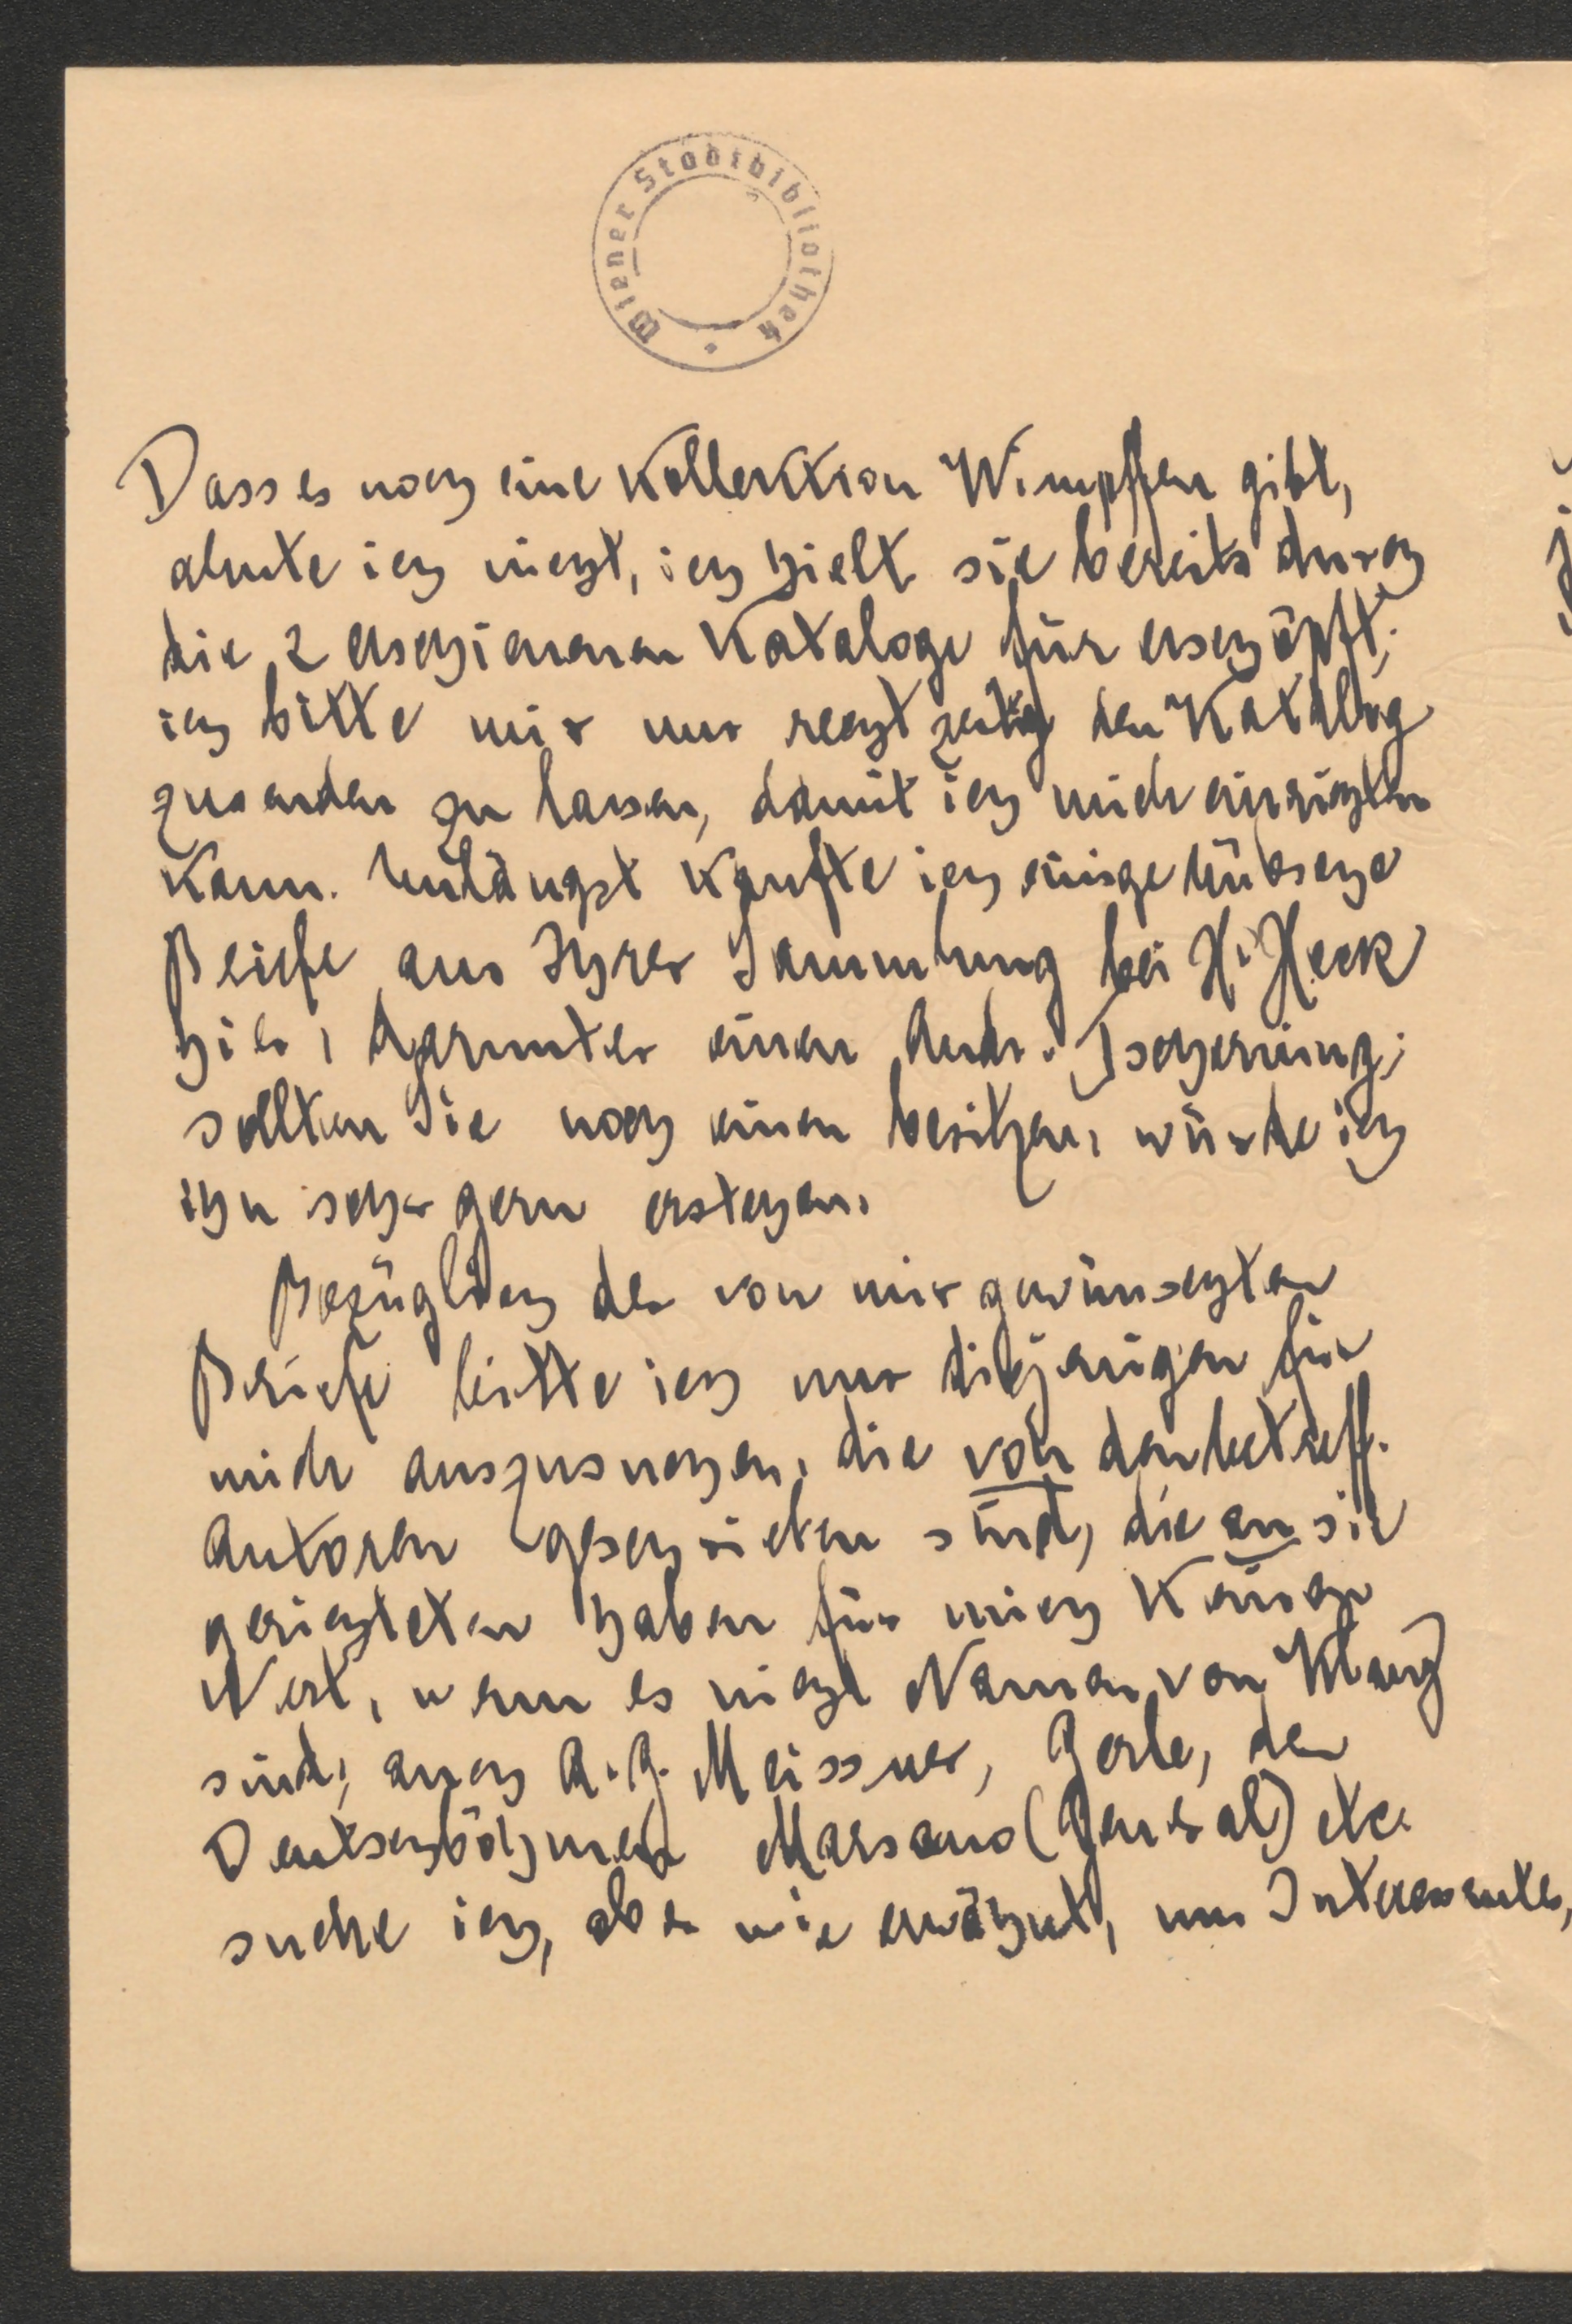 Wiener Stadtbibliothek
Dass es noch eine Kollektion Wimpffen gibt,
ahnte ich nicht, ich hielt sie bereits durch
die 2 erschienenen Kataloge für erschöpft;
ich bitte mir nur rechtzeitig den Katalog
zusenden zu lassen, damit ich mich einrichten
kann. Unlängst kaufte ich einige hübsche
Briefe aus Ihrer Sammlung bei H. Heck
hier, darunter einen Andr. Tscherning;
sollten Sie noch einen besitzen, würde ich
ihn sehr gern erstehen.
Bezüglich der von mir gewünschten
Briefe bitte ich nur diejenigen für
mich auszusuchen, die von den betreff.
Autoren geschrieben sind, die an sie
gerichteten haben für mich keinen
Wert, wenn es nicht Namen von Klang
sind; auch A. G. Meissner, Gerle, den
Deutschböhmen Marsano (General) etc.
suche ich, aber wie erwähnt, nur Interessantes,